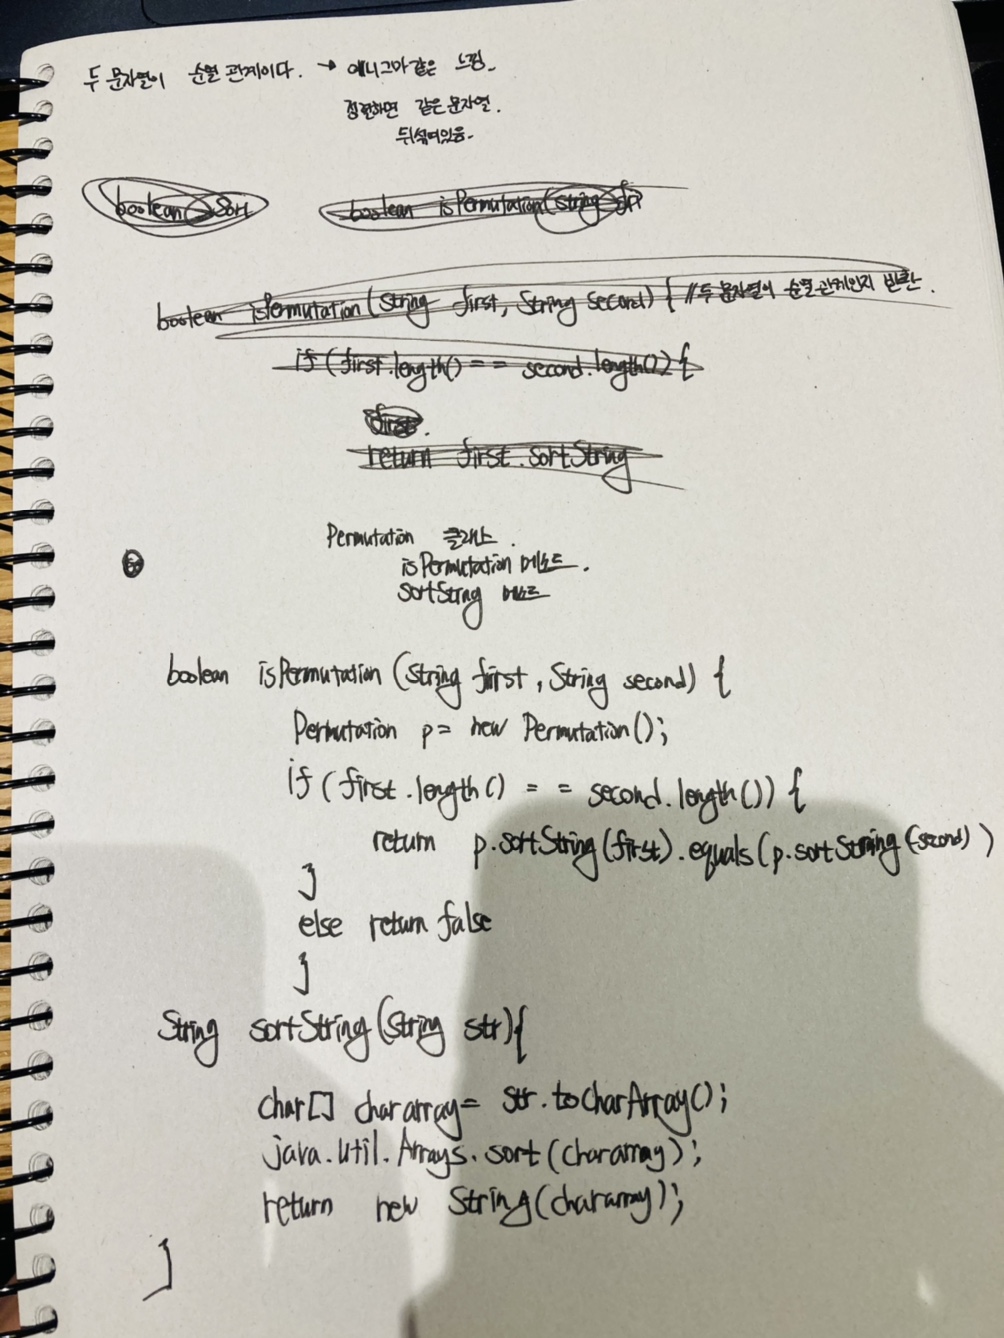 두 문자열이 순열 관계이다. → 애니그마같은 느낌.
정렬하면 같은 문자열.
뒤섞여있음.
boolean Sort boolean isPermutation(String
boolean isPermutation(String first, String second) { // 두 문자열이 순열관계인지 반환.
if (first.length() == second.length()) {
first.
return first.sortString
Permutation 클래스.
isPermutation 메소드.
sortString 메소드
boolean isPermutation (String first, String second) {
Permutation p = new Permutation();
if (first.length() == second.length()) {
return p.sortString(first).equals(p.sortString(second))
}
else return false
}
String sortString(String str){
char[] chararray = str.toCharArray();
java.util.Arrays.sort(chararray);
return new String(chararray);
}